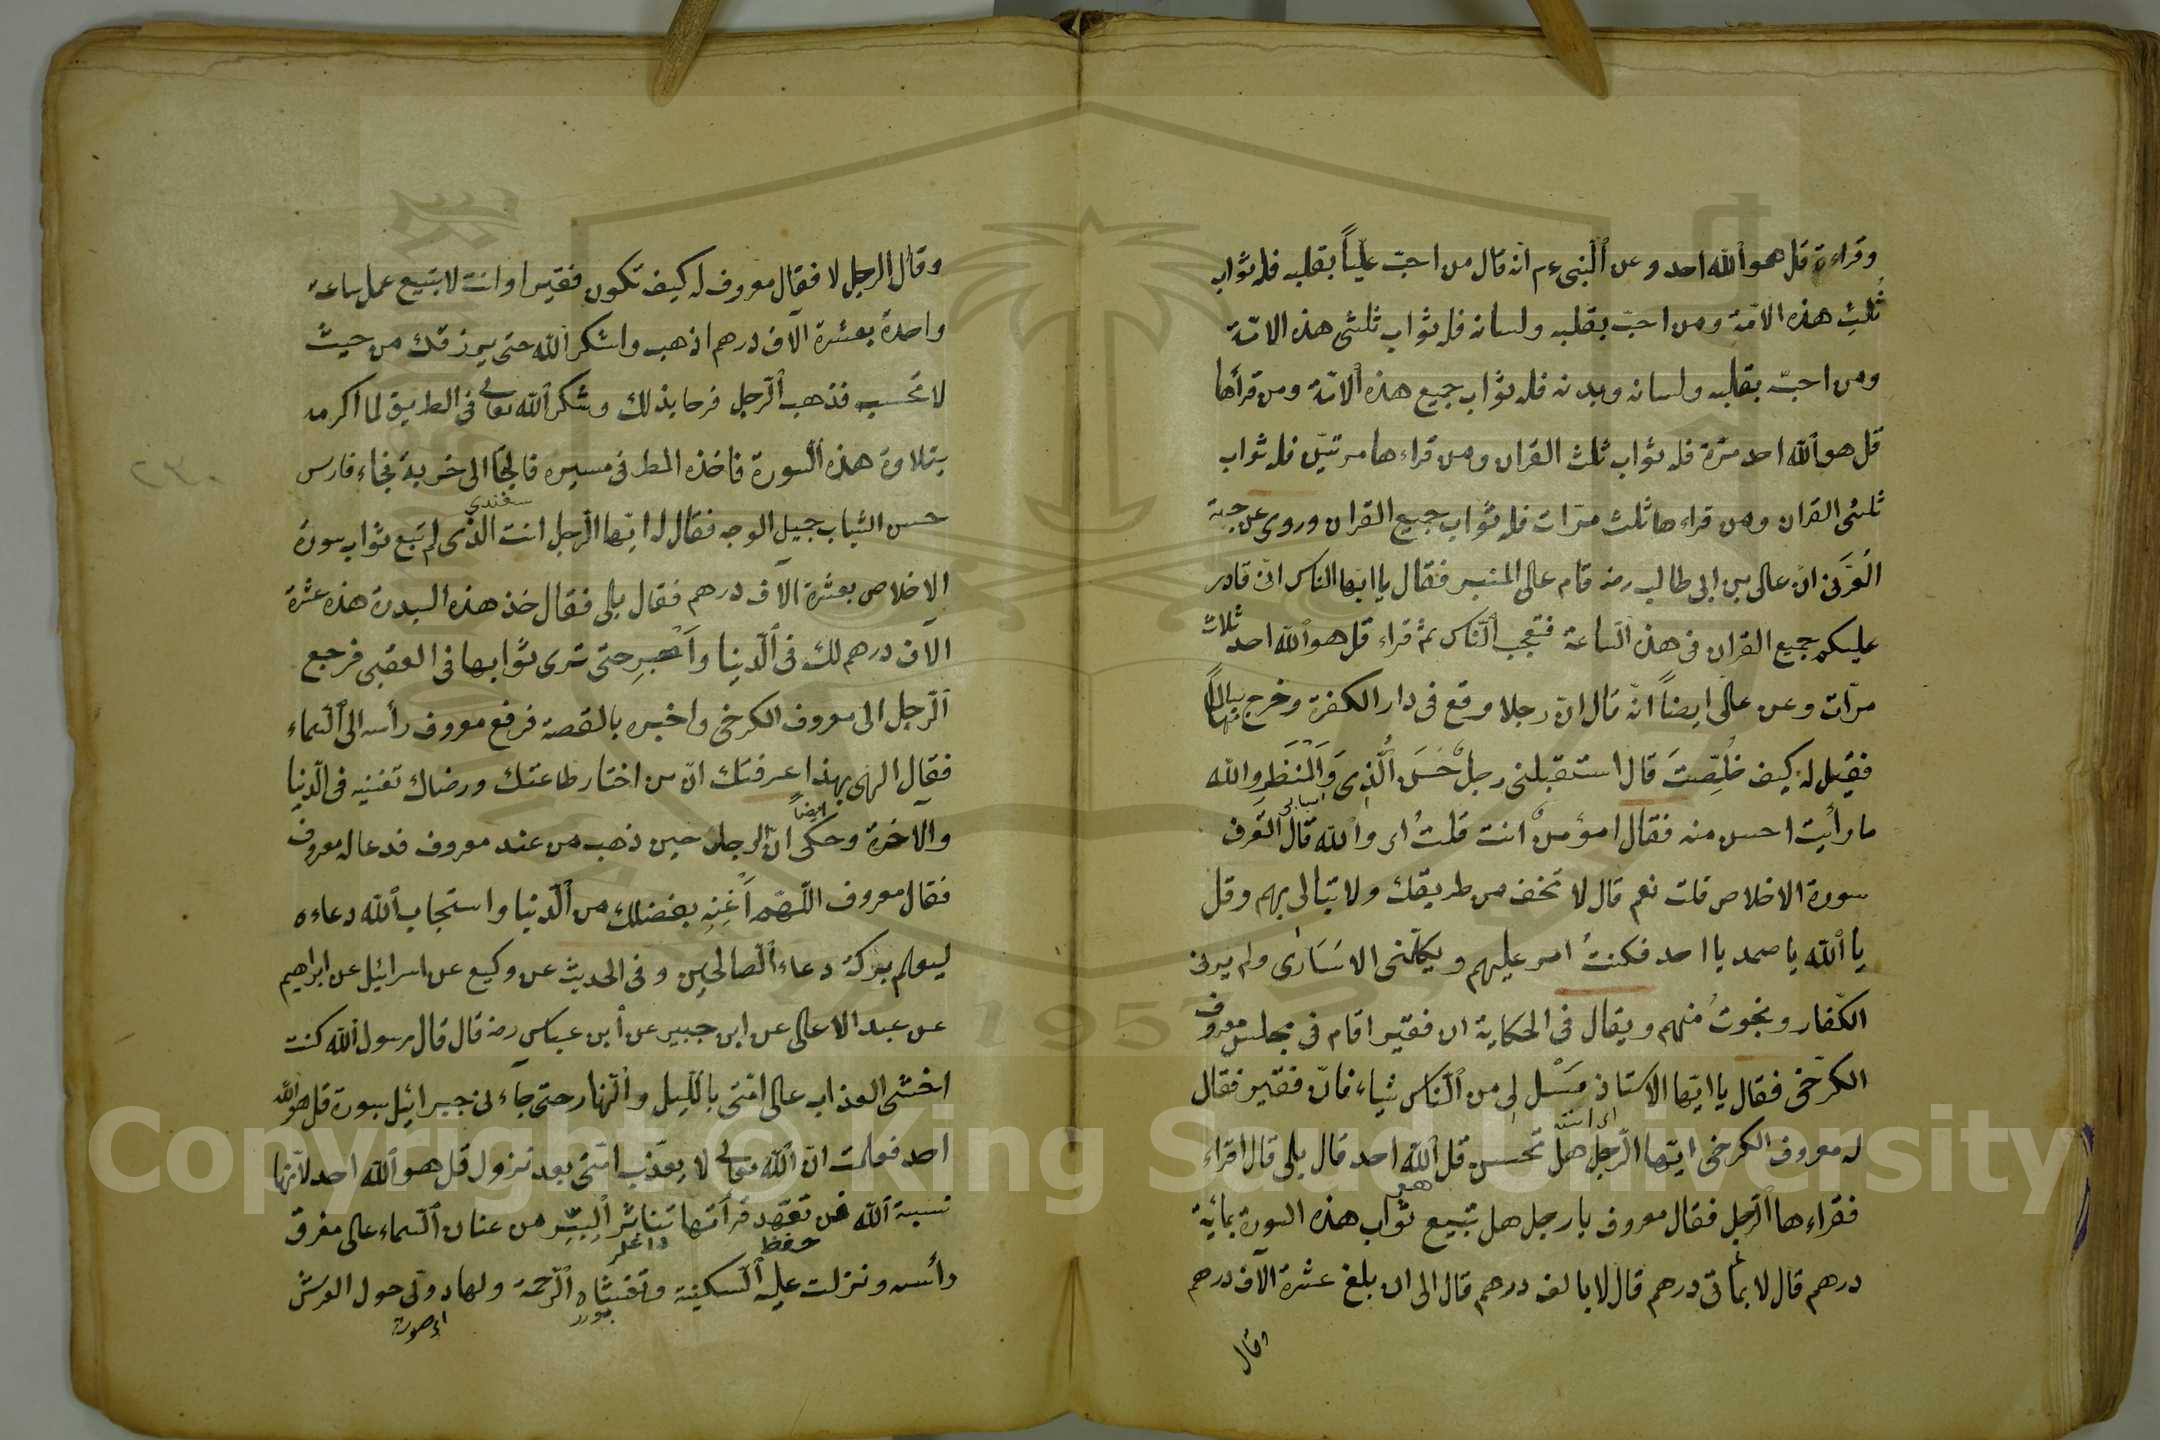 وقراءة قل هو الله احد وعن النبى ءم انه قال من احبّ عليّاً بقلبه فله ثواب
ثُلثِ هذه الامّة ومن احبّ بقلبه ولسانه فله ثواب ثلثى هذه الامّة
ومن احبّ بقلبه ولسانه وبدنه فله ثواب جميع هذه الامّة ومن قرأها
قل هو الله احد مرّة فله ثواب ثلث القران ومن قراءها مرتيّن فله ثواب
ثلثى القران ومن قراءها ثلث مرّات فله ثواب جميع القران وروى عن
العُرَنى انّ على بن ابى طالب رضه قام على المنبر فقال يا ايها الناس انّى قادر
عليكم جميع القران فى هذه الساعة فتعجب الناس ثم قراء قل هو الله احد ثلاث
مرّات وعن على ايضاً انّه قال انّ رجلا وقع فى دار الكفرة وخرج سالماً
فقيل له كيف خُلِّصتَ قال استقبلنى رجلٌ حَسَن الذِىّ وَالمَنْظَر والله
ما رأيت احسن منه فقال امؤمنٌ انت قلتُ اى والله قال اتعرف
سورة الاخلاص قلت نعم قال لا تخف من طريقك ولا تبالى بهم وقل
يا الله يا صمد يا احد فكنتُ امر عليهم ويكلّمنى الاسَارى ولم يرنى
الكفّار ونجوتُ منهم ويقال فى الحكاية ان فقيرا قام فى مجلس معروف
الكرخّى فقال يا ايّها الاستاذ سَلْ لى من الناس شياء فانّ فقير فقال
له معروف الكرخى ايّها الرّجل هل تحسن قل هو الله احد قال بلى قال اقراء
فقراءها الرّجل فقال معروف يا رجل هل تبيع ثواب هذه السورة بمائية
درهم قال لا بمأتى درهم قال لا بالف درهم قال الى ان بلغ عشرة الآف درهم
وقال
وقال الرجل لا فقال معروف له كيف تكون فقيرا وانت لا تبيع عمل ساعة
واحدة بعشرة الآف درهم اذهب واشكر الله حتى يرزقك من حيث
لا تحسب فذهب الرّجل فرحا بذلك وشكر الله تعالى فى الطريق لما اكرمه
بتلاوة هذه السورة فاخذه المطر فى مسيره فالجأ الى خربة فجاء فارس
حسن الثياب جميل الوجه فقال له ايّها الرّجل انت الذى لم تبع ثواب سورة
الاخلاص بعشرة الآف درهم فقال بلى فقال خذ هذه البدرة هذه عشرة
الآف درهم لك فى الدّنيا وَاصْبِر حتى ترى ثوابها فى العقبى فرجع
الرّجل الى معروف الكرخى واخبره بالقصة فرفع معروف رأسه الى السماء
فقال الهى بهذا عرفتك انّ من اختار طاعتك ورضاك تغنيه فى الدّنيا
والاخرة وحكى ايضاً انّ الرجل حين ذهب من عند معروف فدعا له معروف
فقال معروف اللّهمّ اَغْنِهِ بفضلك من الدّنيا واستجاب الله دعاءه
ليعلم بركة دعاء الصالحين وفى الحديث عن وكيع عن اسرائيل عن ابراهيم
عن عبد الاعلى عن ابن جبير عن ابن عباس رضه قال قال رسول الله كنت
اخشى العذاب على امّتى بالليل والنّهار حتى جاءنى جبرائيل بسورة قل هو الله
احد فعلمت انّ الله تعالى لا يعذّب امّتى بعد نزول قل هو الله احد لانّها
نسبة الله فمن تعهّد قرأتها تناثر البِرّ من عنان السماء على مفرق
حفظ
رأسه ونزلت عليه السكينة وتغشاه الرّحمة ولها دوىّ حول العرش
اى صوت